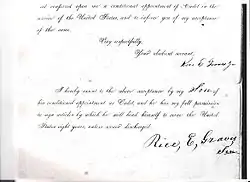 at conferred upon me a conditional appointment of Cadet in the
service of the United States, and to inform you of my acceptance
of the same.
Very respectfully,
Your obedient servant,
Rice E Graves Jr
I hereby assent to the above acceptance by my Son of
his conditional appointment as Cadet, and he has my full permission
to sign articles by which he will bind himself to serve the United
States eight years, unless sooner discharged.
Rice, E, Graves
Sen